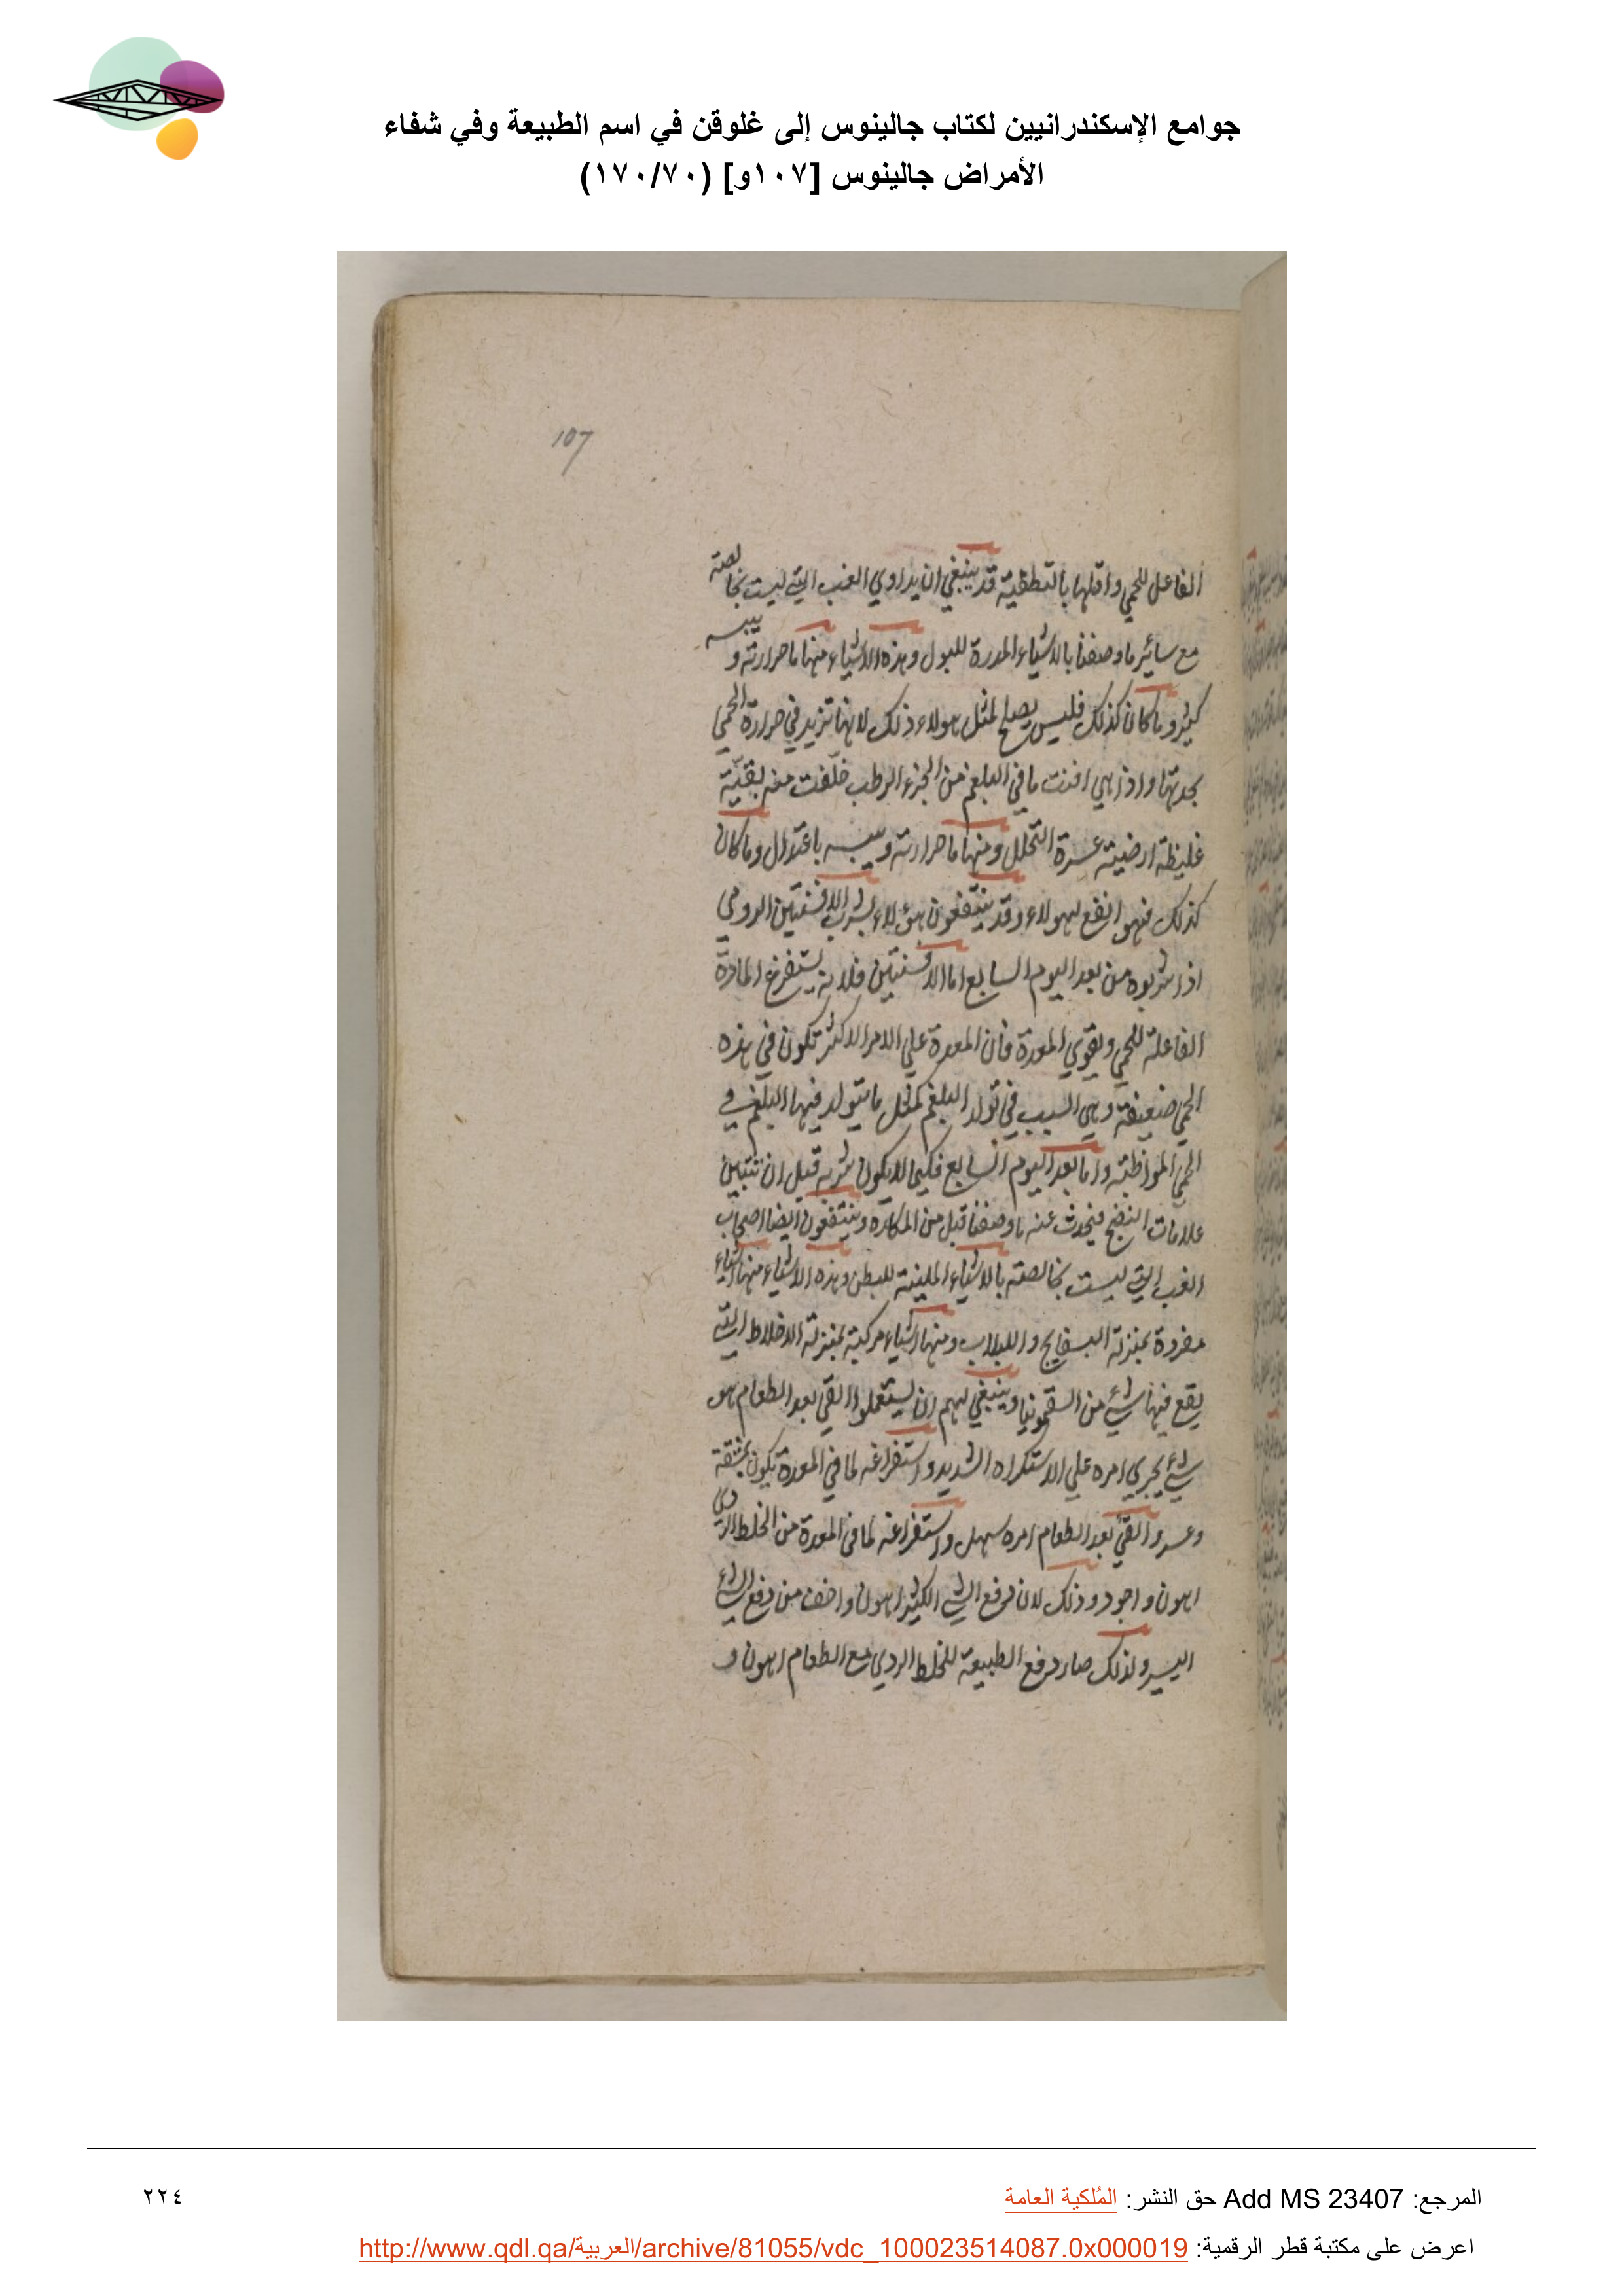 جوامع الإسكندرانيين لكتاب جالينوس إلى غلوقن في اسم الطبيعة وفي شفاء
الأمراض جالينوس [١٠٧و] (١٧٠/٧٠)
107
الفاعل للحمي واقلها بالتطفية قد ينبغي ان يداوي الغب التي ليست بخالصة
مع سائر ما وصفنا بالاشياء المدرة للبول وهذه الاشياء منها ما حرارته ويبسه
كثير وما كان كذلك فليس يصلح لمثل هولاء وذلك لانها تزيد في حرارة الحمي
بحدتها واذا هي افنت ما في البلغم من الجزء الرطب خلّفت منه بقيّة
غليظة ارضية عسرة التحلل ومنها ما حرارته ويبسه باعتدال وما كان
كذلك فهو انفع لهولاء وقد ينتفعون هؤلاء بشرب الافسنتين الرومي
اذا شربوه من بعد اليوم السابع اما الافسنتين فلانه يستفرغ المادة
الفاعلة للحمي ويقوي المعدة فان المعدة علي الامر الاكثر تكون في هذه
الحمي ضعيفة وهي السبب في تولد البلغم كمثل ما يتولد فيها البلغم في
الحمي المواظبة واما بعد اليوم السابع فكيما لا يكون شربه قبل ان تتبين
علامات النضج فيحدث عنه ما وصفنا قبل من المكاره وينتفعون ايضا اصحاب
الغب التي ليست بخالصة بالاشياء الملينة للبطن وهذه الاشياء منها اشياء
مفردة بمنزلة البسفايج واللبلاب ومنها اشياء مركبة بمنزلة الاخلاط التي
يقع فيها شيء من السقمونيا وينبغي لهم ان يستعملوا القي بعد الطعام هو
شيء يجري امره علي الاستكراه الشديد واستفراغه لما في المعدة يكون بمشقة
وعسر والقيء بعد الطعام امره سهل واستفراغه لما في المعدة من الخلط الردي
اهون واجود وذلك لان دفع الشي الكثير اهون واخف من دفع الشيء
اليسير ولذلك صار دفع الطبيعة للخلط الردي مع الطعام اهون و
المرجع: Add MS 23407 حق النشر: المُلكية العامة
٢٢٤
اعرض على مكتبة قطر الرقمية: http://www.qdl.qa/العربية/archive/81055/vdc_100023514087.0x000019